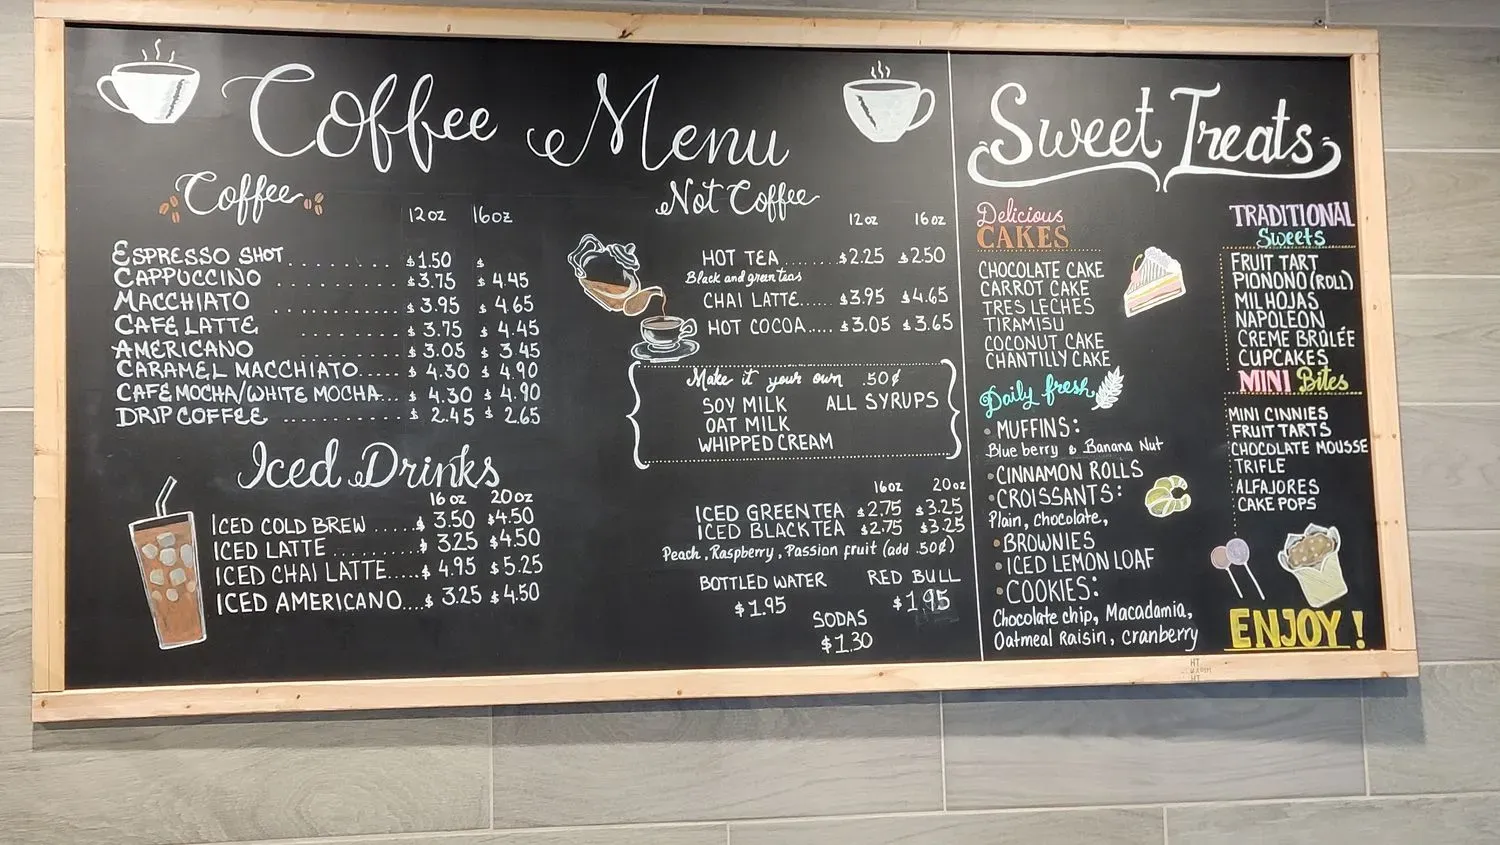 Coffee Menu
Coffee
12oz 16oz
ESPRESSO SHOT ........ $1.50 $
CAPPUCCINO ......... $3.75 $ 4.45
MACCHIATO .......... $3.95 $ 4.65
CAFE LATTE ........ $3.75 $ 4.45
AMERICANO ........ $3.05 $ 3.45
CARAMEL MACCHIATO..... $ 4.30 $ 4.90
CAFE MOCHA/WHITE MOCHA... $ 4.30 $ 4.90
DRIP COFFEE .......... $ 2.45 $ 2.65
Iced Drinks
16oz 20oz
ICED COLD BREW ..... $ 3.50 $4.50
ICED LATTE .......... $ 3.25 $4.50
ICED CHAI LATTE..... $ 4.95 $5.25
ICED AMERICANO.... $ 3.25 $4.50
Not Coffee
12oz 16oz
HOT TEA ....... $2.25 $2.50
Black and green teas
CHAI LATTE...... $3.95 $4.65
HOT COCOA..... $3.05 $3.65
Make it your own .50¢
SOY MILK ALL SYRUPS
OAT MILK
WHIPPED CREAM
16oz 20oz
ICED GREEN TEA $2.75 $3.25
ICED BLACK TEA $2.75 $3.25
Peach, Raspberry, Passion fruit (add .50¢)
BOTTLED WATER RED BULL
$1.95 $1.95
SODAS
$1.30
Sweet Treats
Delicious
CAKES
CHOCOLATE CAKE
CARROT CAKE
TRES LECHES
TIRAMISU
COCONUT CAKE
CHANTILLY CAKE
Daily fresh
• MUFFINS:
Blue berry & Banana Nut
• CINNAMON ROLLS
• CROISSANTS:
Plain, chocolate,
• BROWNIES
• ICED LEMON LOAF
• COOKIES:
Chocolate chip, Macadamia,
Oatmeal Raisin, cranberry
TRADITIONAL
Sweets
FRUIT TART
PIONONO (ROLL)
MIL HOJAS
NAPOLEON
CREME BRÛLÉE
CUPCAKES
MINI Bites
MINI CINNIES
FRUIT TARTS
CHOCOLATE MOUSSE
TRIFLE
ALFAJORES
CAKE POPS
ENJOY!
HT
HT